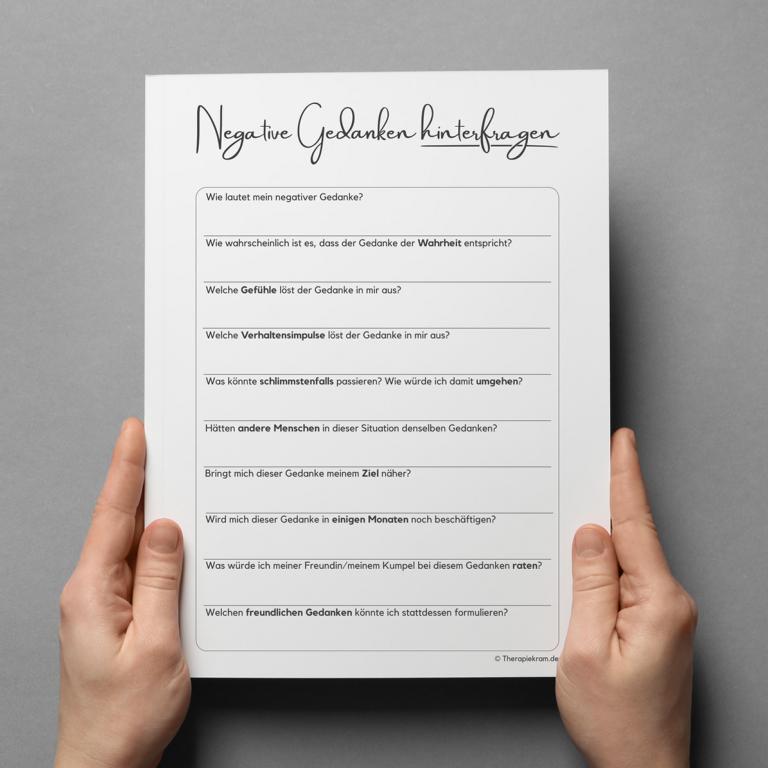 Negative Gedanken hinterfragen
Wie lautet mein negativer Gedanke?
Wie wahrscheinlich ist es, dass der Gedanke der Wahrheit entspricht?
Welche Gefühle löst der Gedanke in mir aus?
Welche Verhaltensimpulse löst der Gedanke in mir aus?
Was könnte schlimmstenfalls passieren? Wie würde ich damit umgehen?
Hätten andere Menschen in dieser Situation denselben Gedanken?
Bringt mich dieser Gedanke meinem Ziel näher?
Wird mich dieser Gedanke in einigen Monaten noch beschäftigen?
Was würde ich meiner Freundin/meinem Kumpel bei diesem Gedanken raten?
Welchen freundlichen Gedanken könnte ich stattdessen formulieren?
© Therapiekram.de